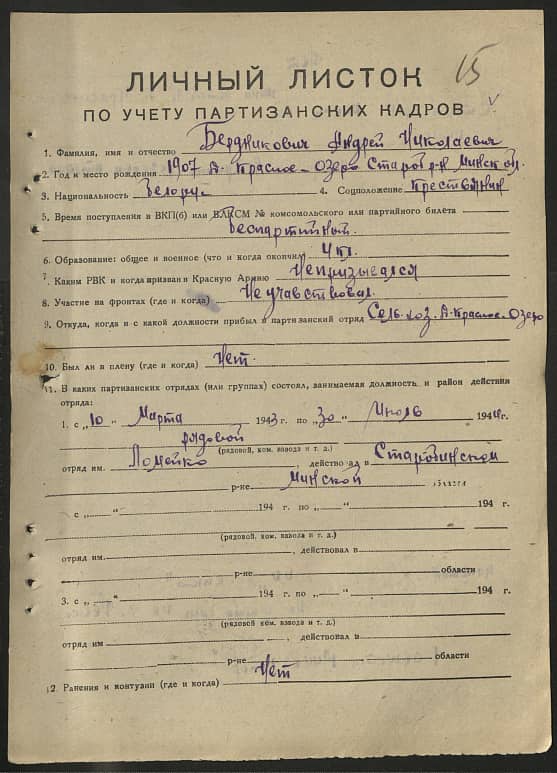 15
ЛИЧНЫЙ ЛИСТОК
ПО УЧЕТУ ПАРТИЗАНСКИХ КАДРОВ
1. Фамилия, имя и отчество Бердникович Андрей Николаевич
2. Год и место рождения 1907 д. Красное-Озеро Староб р-н Минской
3. Национальность Белорус 4. Соцположение крестьянин
5. Время поступления в ВКП(б) или ВЛКСМ № комсомольского или партийного билета
Беспартийный.
6. Образование: общее и военное (что и когда окончил) 4 кл.
7. Каким РВК и когда призван в Красную Армию Непризывался
8. Участие на фронтах (где и когда) Не учавствовал.
9. Откуда, когда и с какой должности прибыл в партизанский отряд Сель.хоз. д.Красное-Озеро
10. Был ли в плену (где и когда) Нет.
11. В каких партизанских отрядах (или группах) состоял, занимаемая должность и район действия
отряда:
1. с „10 “ Марта 1943 г. по „30“ Июль 1944 г.
рядовой
(рядовой, ком. взвода и т. д.)
отряд им. Ломейко, действовал в Старобинском
р-не Минской области
с „ “ 194 г. по „ “ 194 г.
(рядовой, ком. взвода и т. д.)
отряд им. , действовал в
р-не области
3. с „ “ 194 г. по „ “ 194 г.
(рядовой, ком. взвода и т. д.)
отряд им , действовал в
р-не области
12. Ранения и контузии (где и когда) Нет